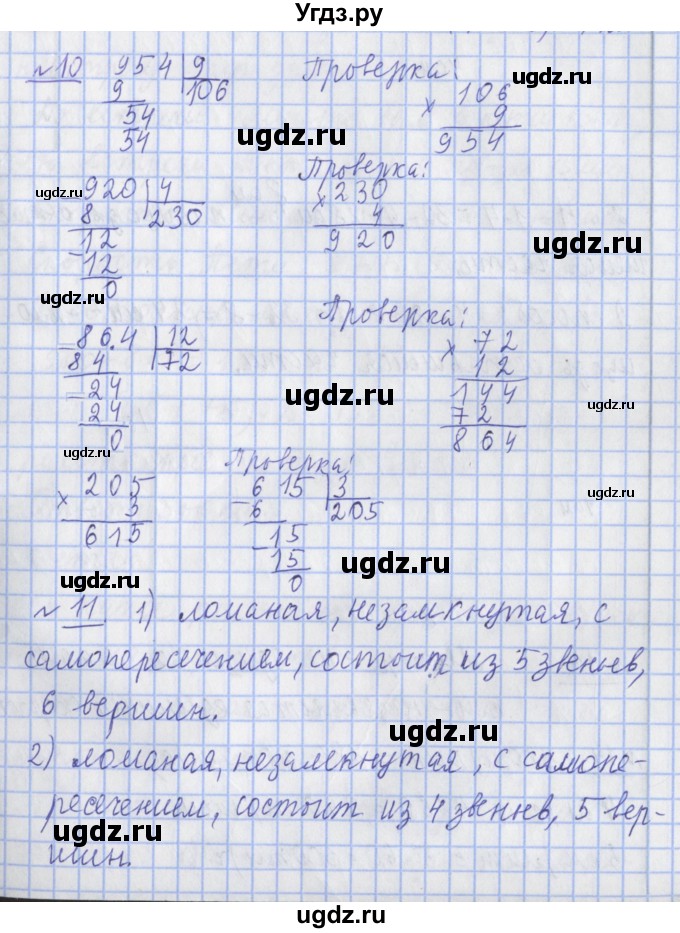 Угдз.ру
№10 954 9 Проверка:
9 106 × 106
54 9
54 954
ugdz.ru ugdz.ru
Проверка:
920 4 × 230
8 230 4
12 920
12
0
ugdz.ru ugdz.ru ugdz.ru
Проверка:
86.4 12 × 72
84 72 12
24 144
24 72
0 864
ugdz.ru ugdz.ru ugdz.ru ugdz.ru
Проверка:
× 205 615 3
3 6 205
615 15
15
0
ugdz.ru ugdz.ru
№ 11 1) ломаная, незамкнутая, с
самопересечением, состоит из 5 звеньев,
6 вершин.
ugdz.ru ugdz.ru
2) ломаная, незамкнутая, с самопе-
ресечением, состоит из 4 звеньев, 5 вер-
шин.
ugdz.ru ugdz.ru
ugdz.ru